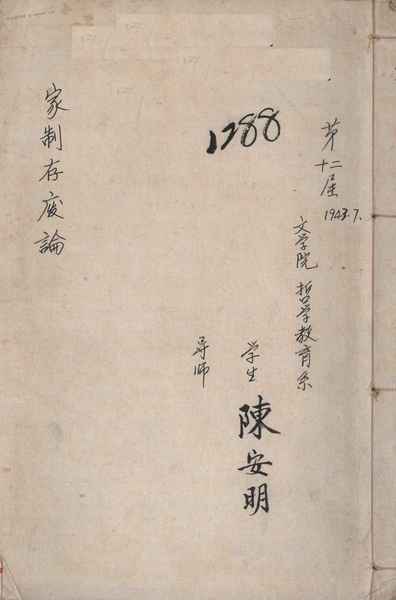 第十二届 1943.7.
文学院 哲学教育系
1288
学生 陳安明
导师
家制存废論